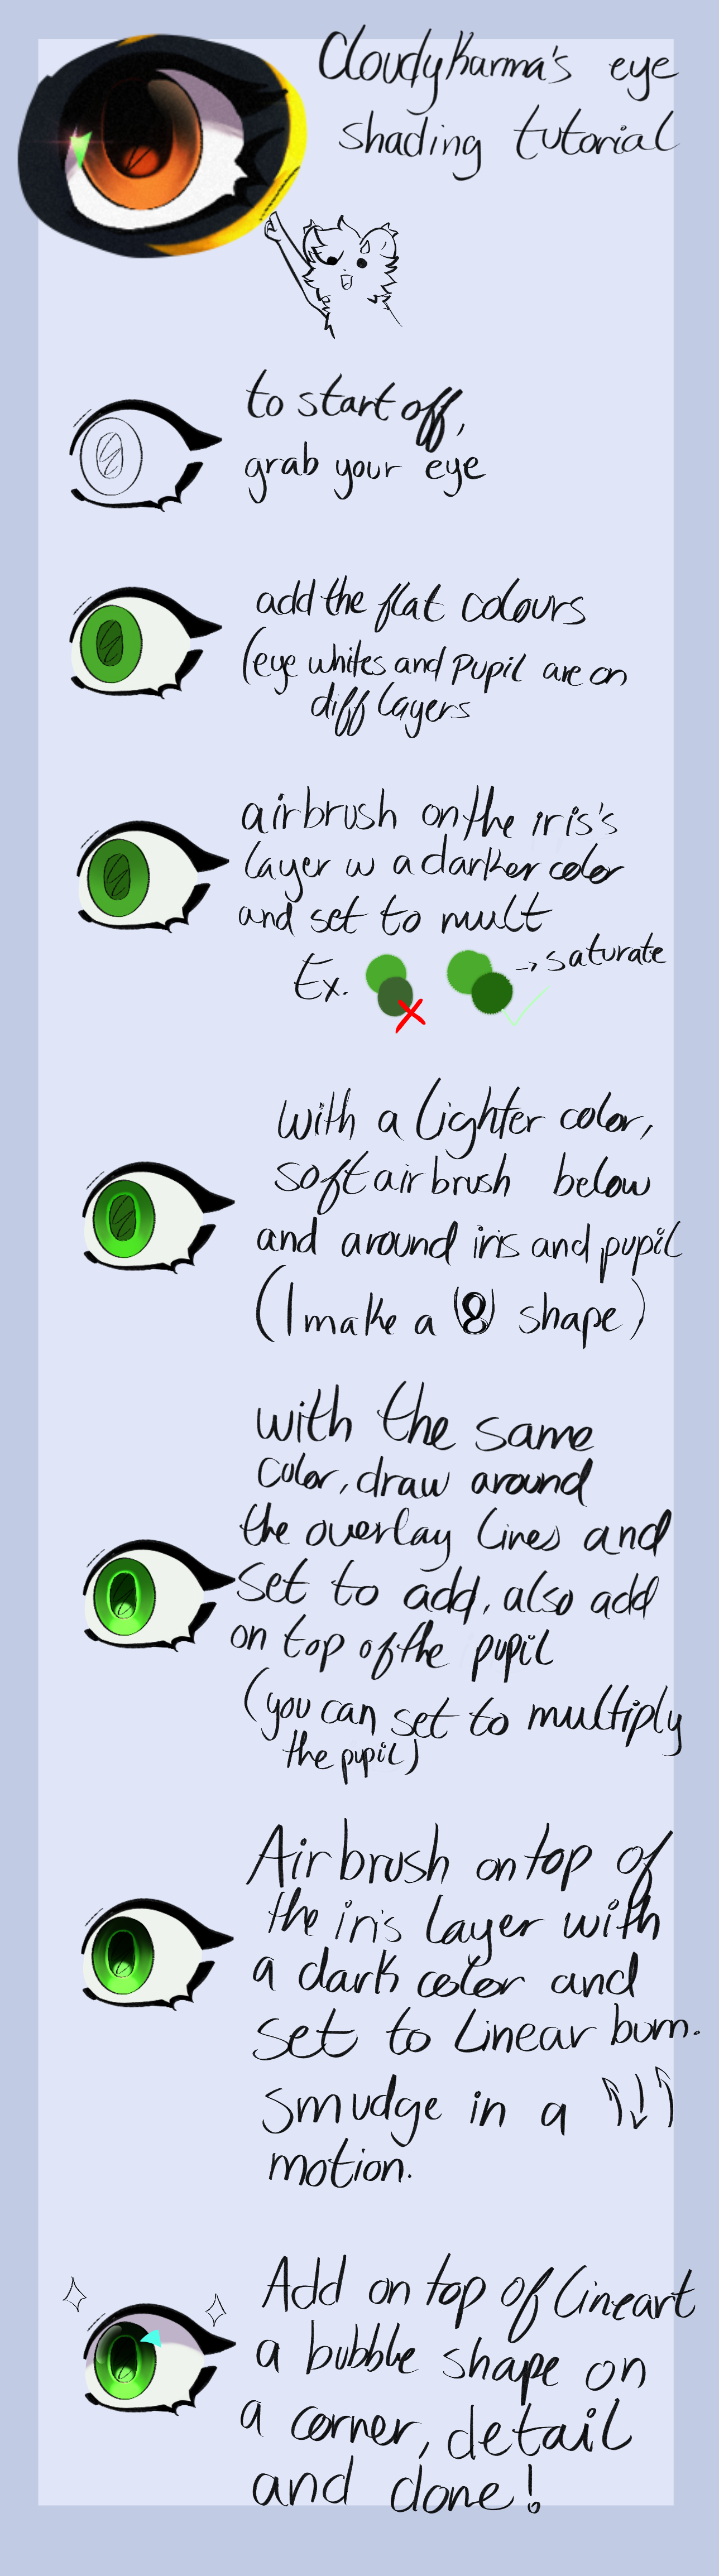 CloudyKarma's eye
shading tutorial
to start off,
grab your eye
add the flat colours
(eye whites and pupil are on
diff layers
airbrush on the iris's
layer w a darker color
and set to mult
Ex.
→ saturate
with a lighter color,
soft airbrush below
and around iris and pupil
(I make a 8 shape)
with the same
color, draw around
the overlay lines and
set to add, also add
on top of the pupil
(you can set to multiply
the pupil)
Airbrush on top of
the iris layer with
a dark color and
set to linear burn.
smudge in a ↑↓↑
motion.
Add on top of lineart
a bubble shape on
a corner, detail
and done!